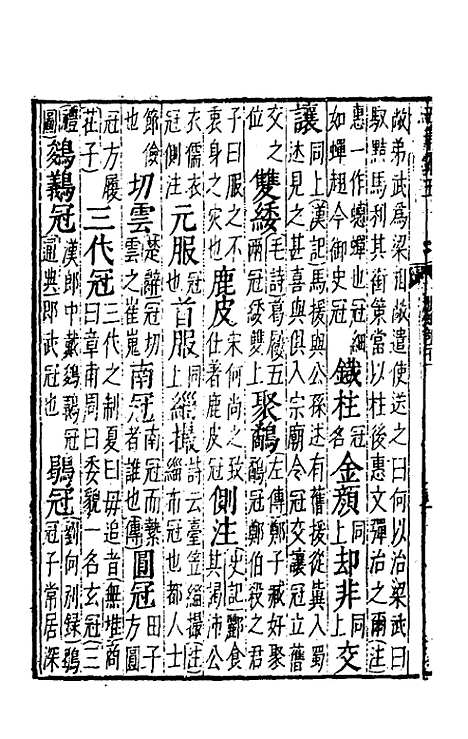 敞弟武爲梁相敞遣使送之曰何以治梁武曰馭黠馬利其銜策當以柱後惠文彈治之爾注
惠一作蟪蟬也冠細如蟬翅今御史冠 鐵柱冠名 金顔同上 却非同上 交
讓同上漢記馬援與公孫述有舊援從冀入蜀述見之甚喜與俱入宗廟令冠交讓冠立舊
交之位 雙緌毛詩葛屨五兩冠緌雙上 聚鷸左傳鄭子臧好聚鷸冠鄭伯殺之君
子曰服之不衷身之灾也 鹿皮宋何尚之致仕著鹿皮 側注史記酈食其謁沛公
衣儒衣冠側注 元服冠也 首服同上 緇撮詩云臺笠緇撮緇布冠也都人士
節儉也 切雲楚辭冠切雲之崔嵬 南冠南冠而縶者誰也傳 圜冠田子方圜
冠方履莊子 三代冠三代之制夏曰毋追音無堆商曰章甫周曰委貌一名玄冠三
禮圖 鵕鸃冠漢郎中戴鵕鸃冠通典即武冠也 鶡冠劉向別錄鶡冠子常居深